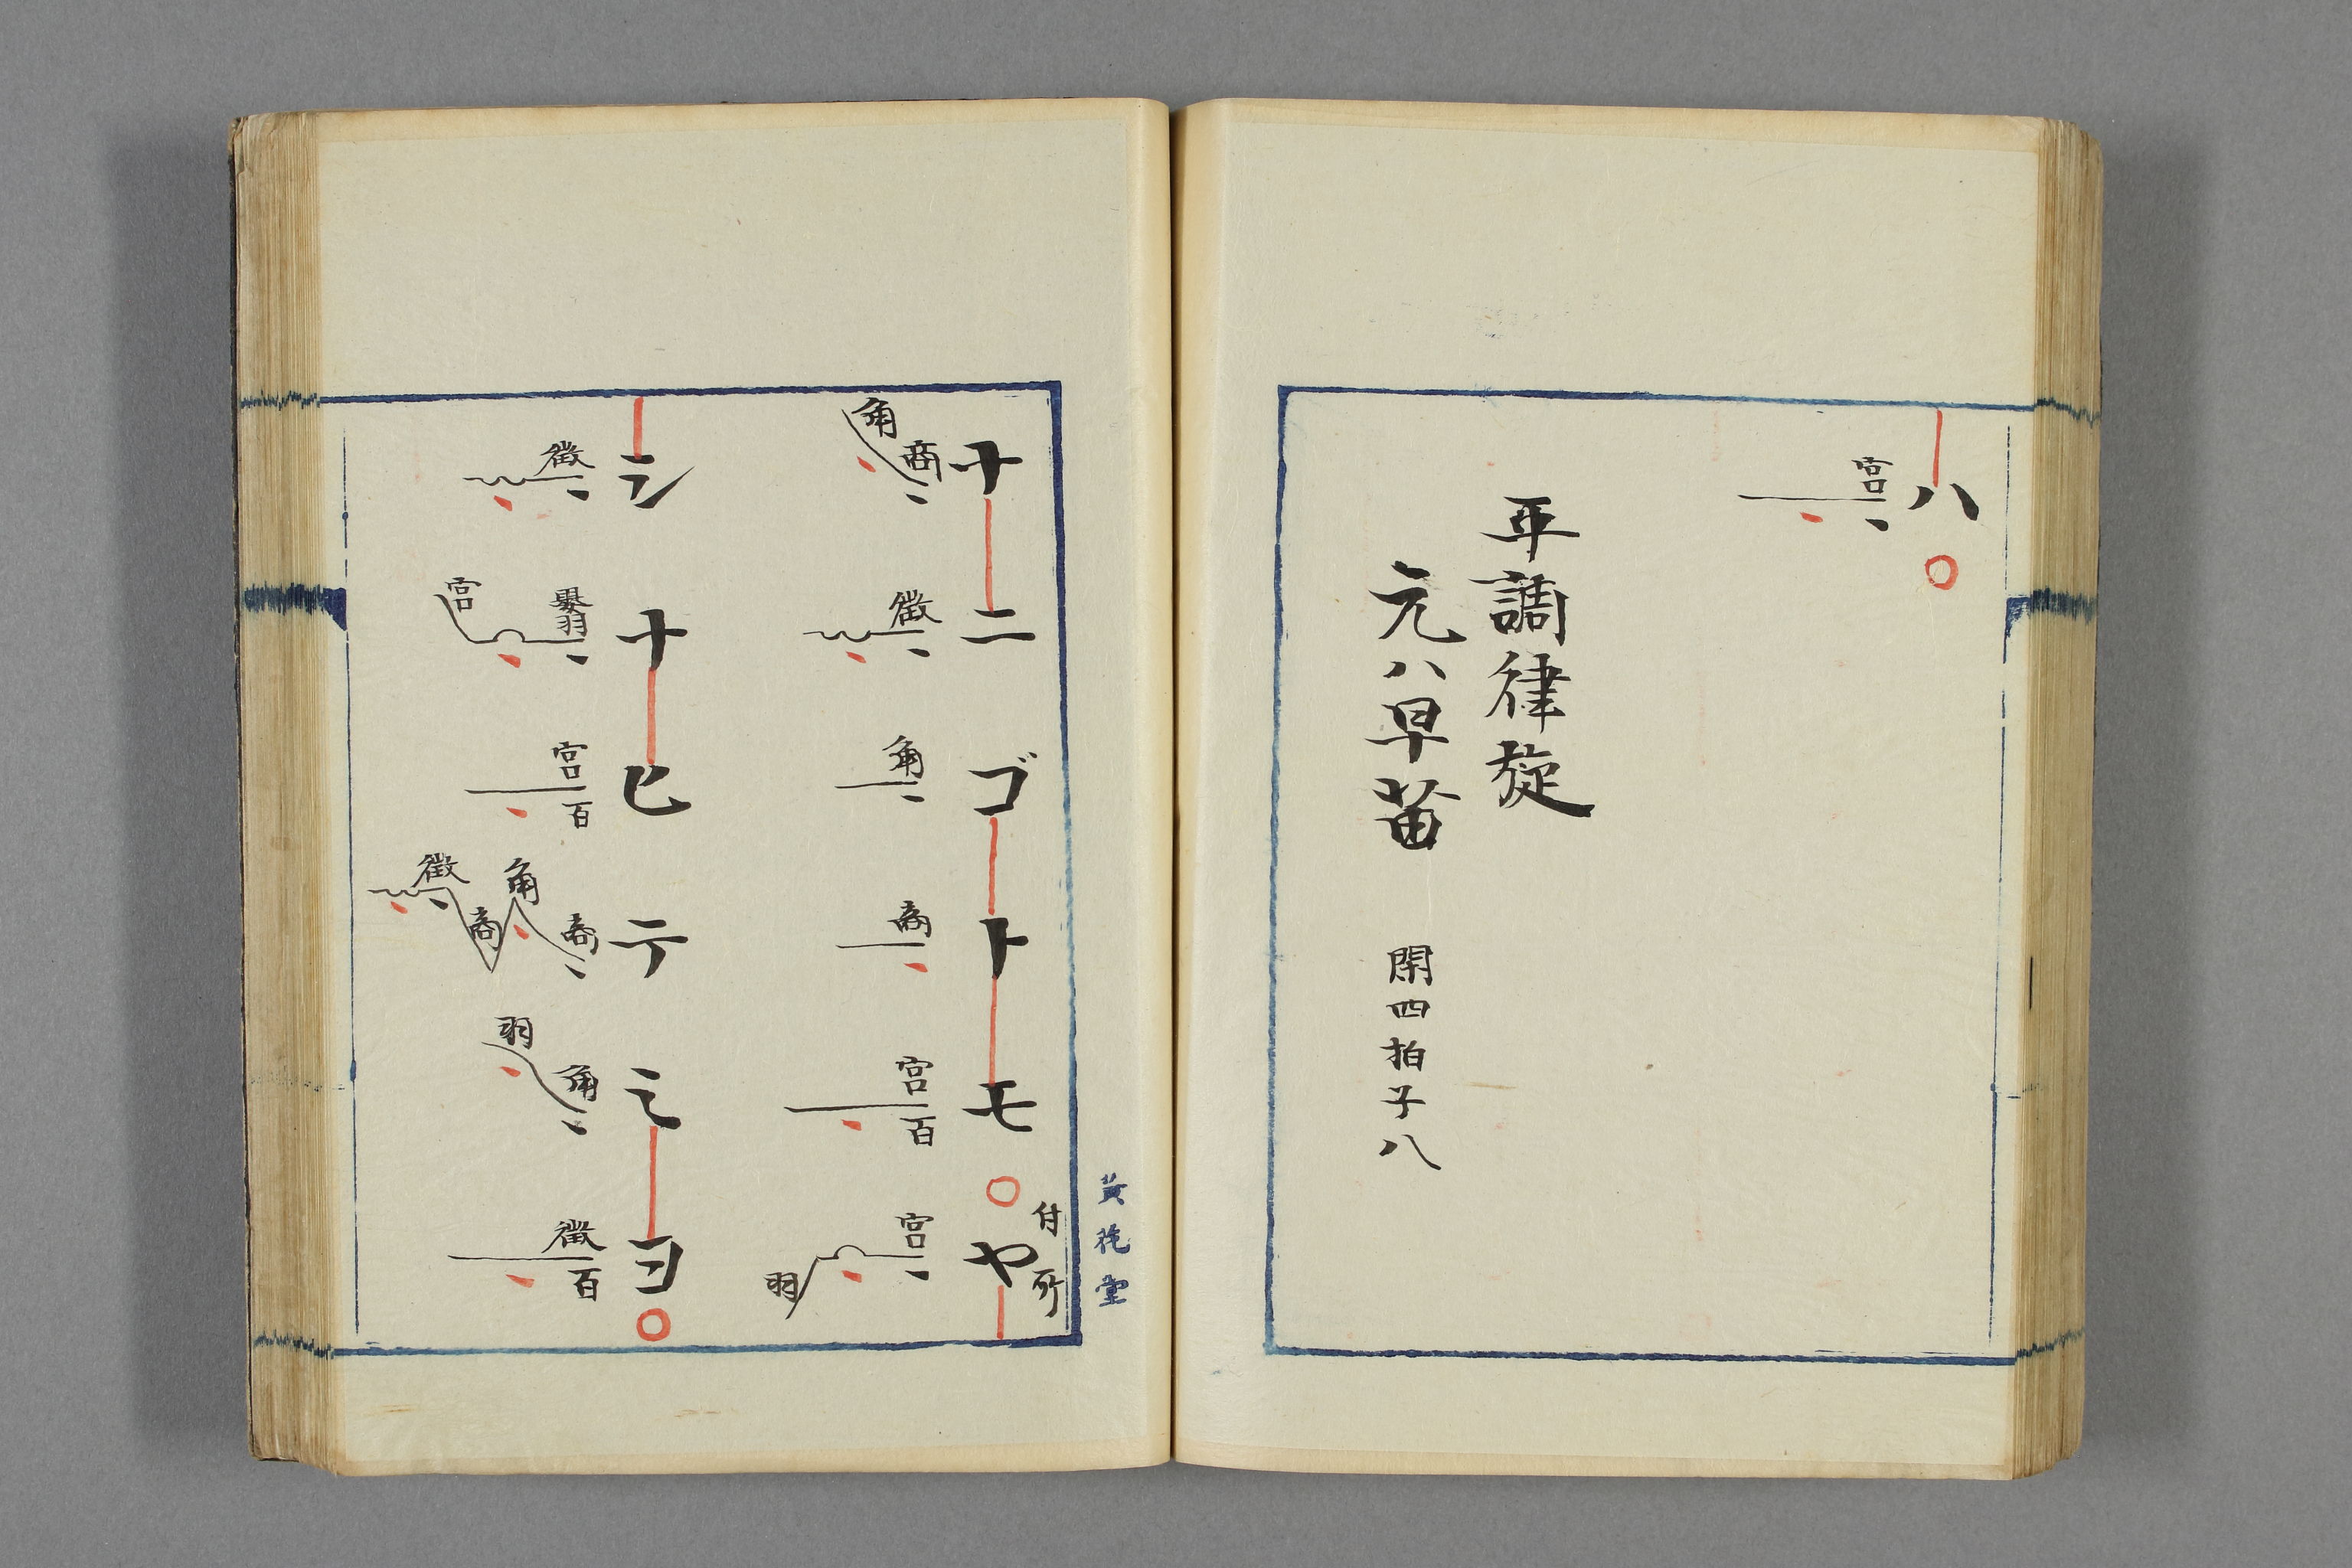 ハ
宮
平調律旋
元ハ早笛 閑四拍子八
黄菴堂
付所
ナニゴトモヤ
商角 徴 角 商 宮百 宮羽
シナヒテミヨ
徴 嬰羽宮 宮百 商角商徴 角羽 徴百